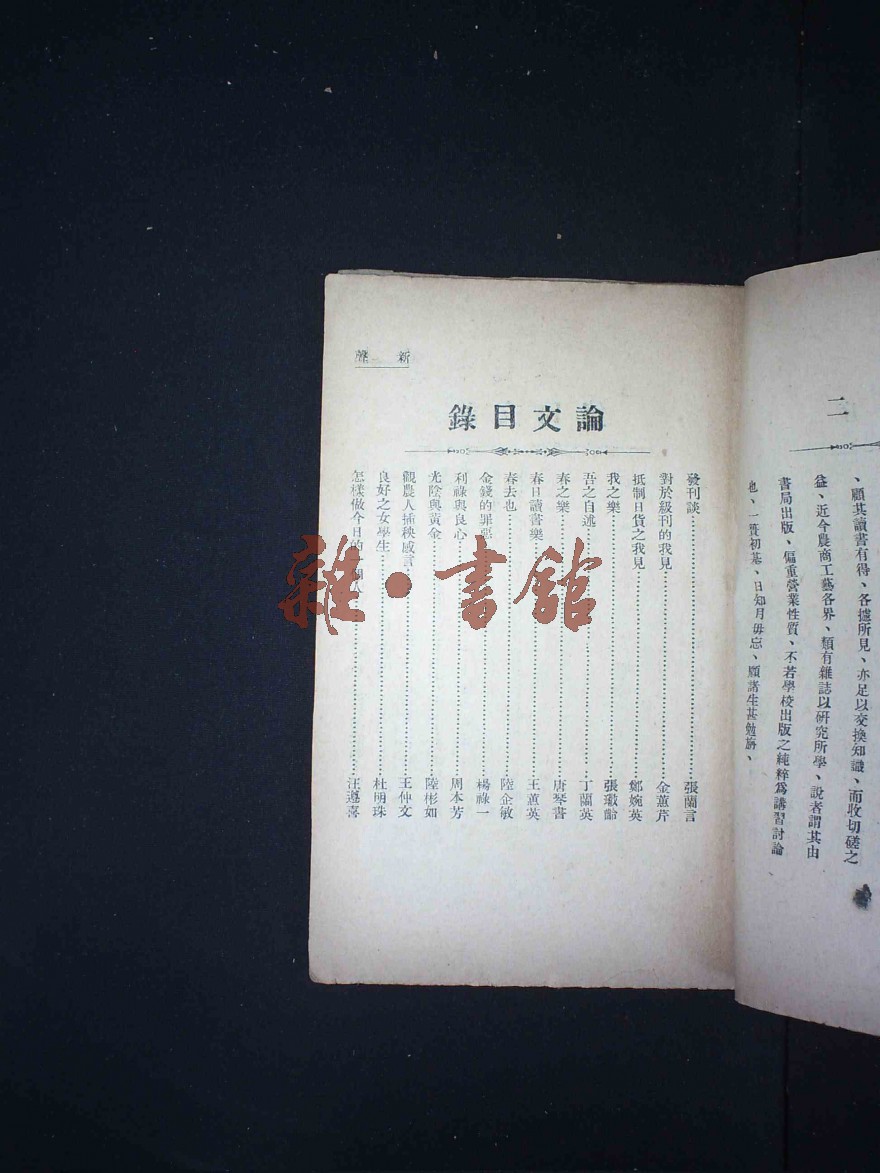 二
、顧其讀書有得、各攄所見、亦足以交換知識、而收切磋之
益、近今農商工藝各界、類有雜誌以硏究所學、說者謂其由
書局出版、偏重營業性質、不若學校出版之純粹爲講習討論
也、一簣初基、日知月毋忘、願諸生甚勉旃、
新聲
論文目錄
發刊談 張蘭言
對於級刊的我見 金蕙芹
抵制日貨之我見 鄭婉英
我之樂 張齡
吾之自述 丁蘭英
春之樂 唐琴書
春日讀書樂 王蕙英
春去也 陸企敏
金錢的罪惡 楊祿一
利祿與良心 周本芳
光陰與黃金 陸彬如
觀農人插秧感言 王仲文
良好之女學生 杜明珠
怎樣做今日的 汪遵喜
雜·書館